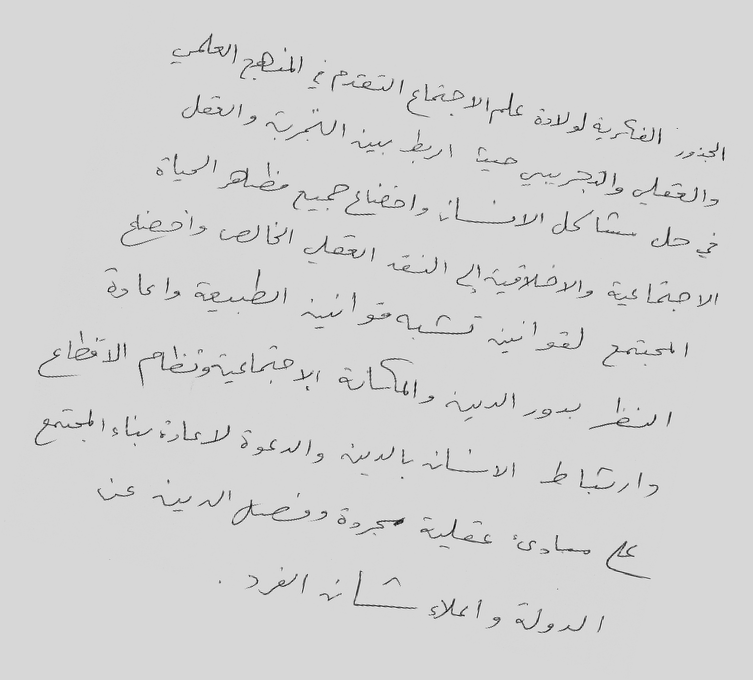 الجذور الفكرية لولادة علم الاجتماع التقدم في المنهج العلمي
والعقلي والتجريبي حيث اربط بين التجربة والعقل
في حل مشاكل الانسان واخضاع جميع مظاهر الحياة
الاجتماعية والاخلاقية إلى النقد العقلي الخالص واخضاع
المجتمع لقوانين تشبه قوانين الطبيعة واعادة
النظر بدور الدين والمكانة الاجتماعية ونظام الاقطاع
وارتباط الانسان بالدين والدعوة لاعادة بناء المجتمع
على مبادئ عقلية مجردة وفصل الدين عن
الدولة واعلاء شان الفرد .